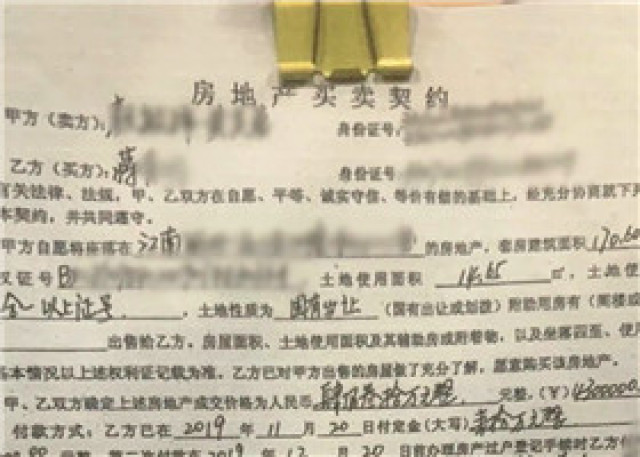 房地产买卖契约
甲方(卖方): 身份证号:
乙方(买方): 蒋 身份证号:
有关法律、法规,甲、乙双方在自愿、平等、诚实守信、等价有偿的基础上,经充分协商就下
本契约,并共同遵守。
甲方自愿将座落在 江南 的房地产,套房建筑面积 170.60
权证号 B 土地使用面积 14.65 ㎡,土地使
以上证号,土地性质为 国有出让 (国有出让或划拨)附助用房有(阁楼
出售给乙方,房屋面积、土地使用面积及其辅助房或附着物,以及坐落四至、使用
基本情况以上述权利证记载为准,乙方已对甲方出售的房屋做了充分了解,愿意购买该房地产。
甲、乙双方确定上述房地产成交价格为人民币 肆佰叁拾万元整 元整,(¥)4300000
付款方式:乙方已在 2019 年 11 月 20 日付定金(大写)壹拾万元整
元整,第二次付款在 2019 年 12 月 20 日前办理房产过户登记手续时乙方